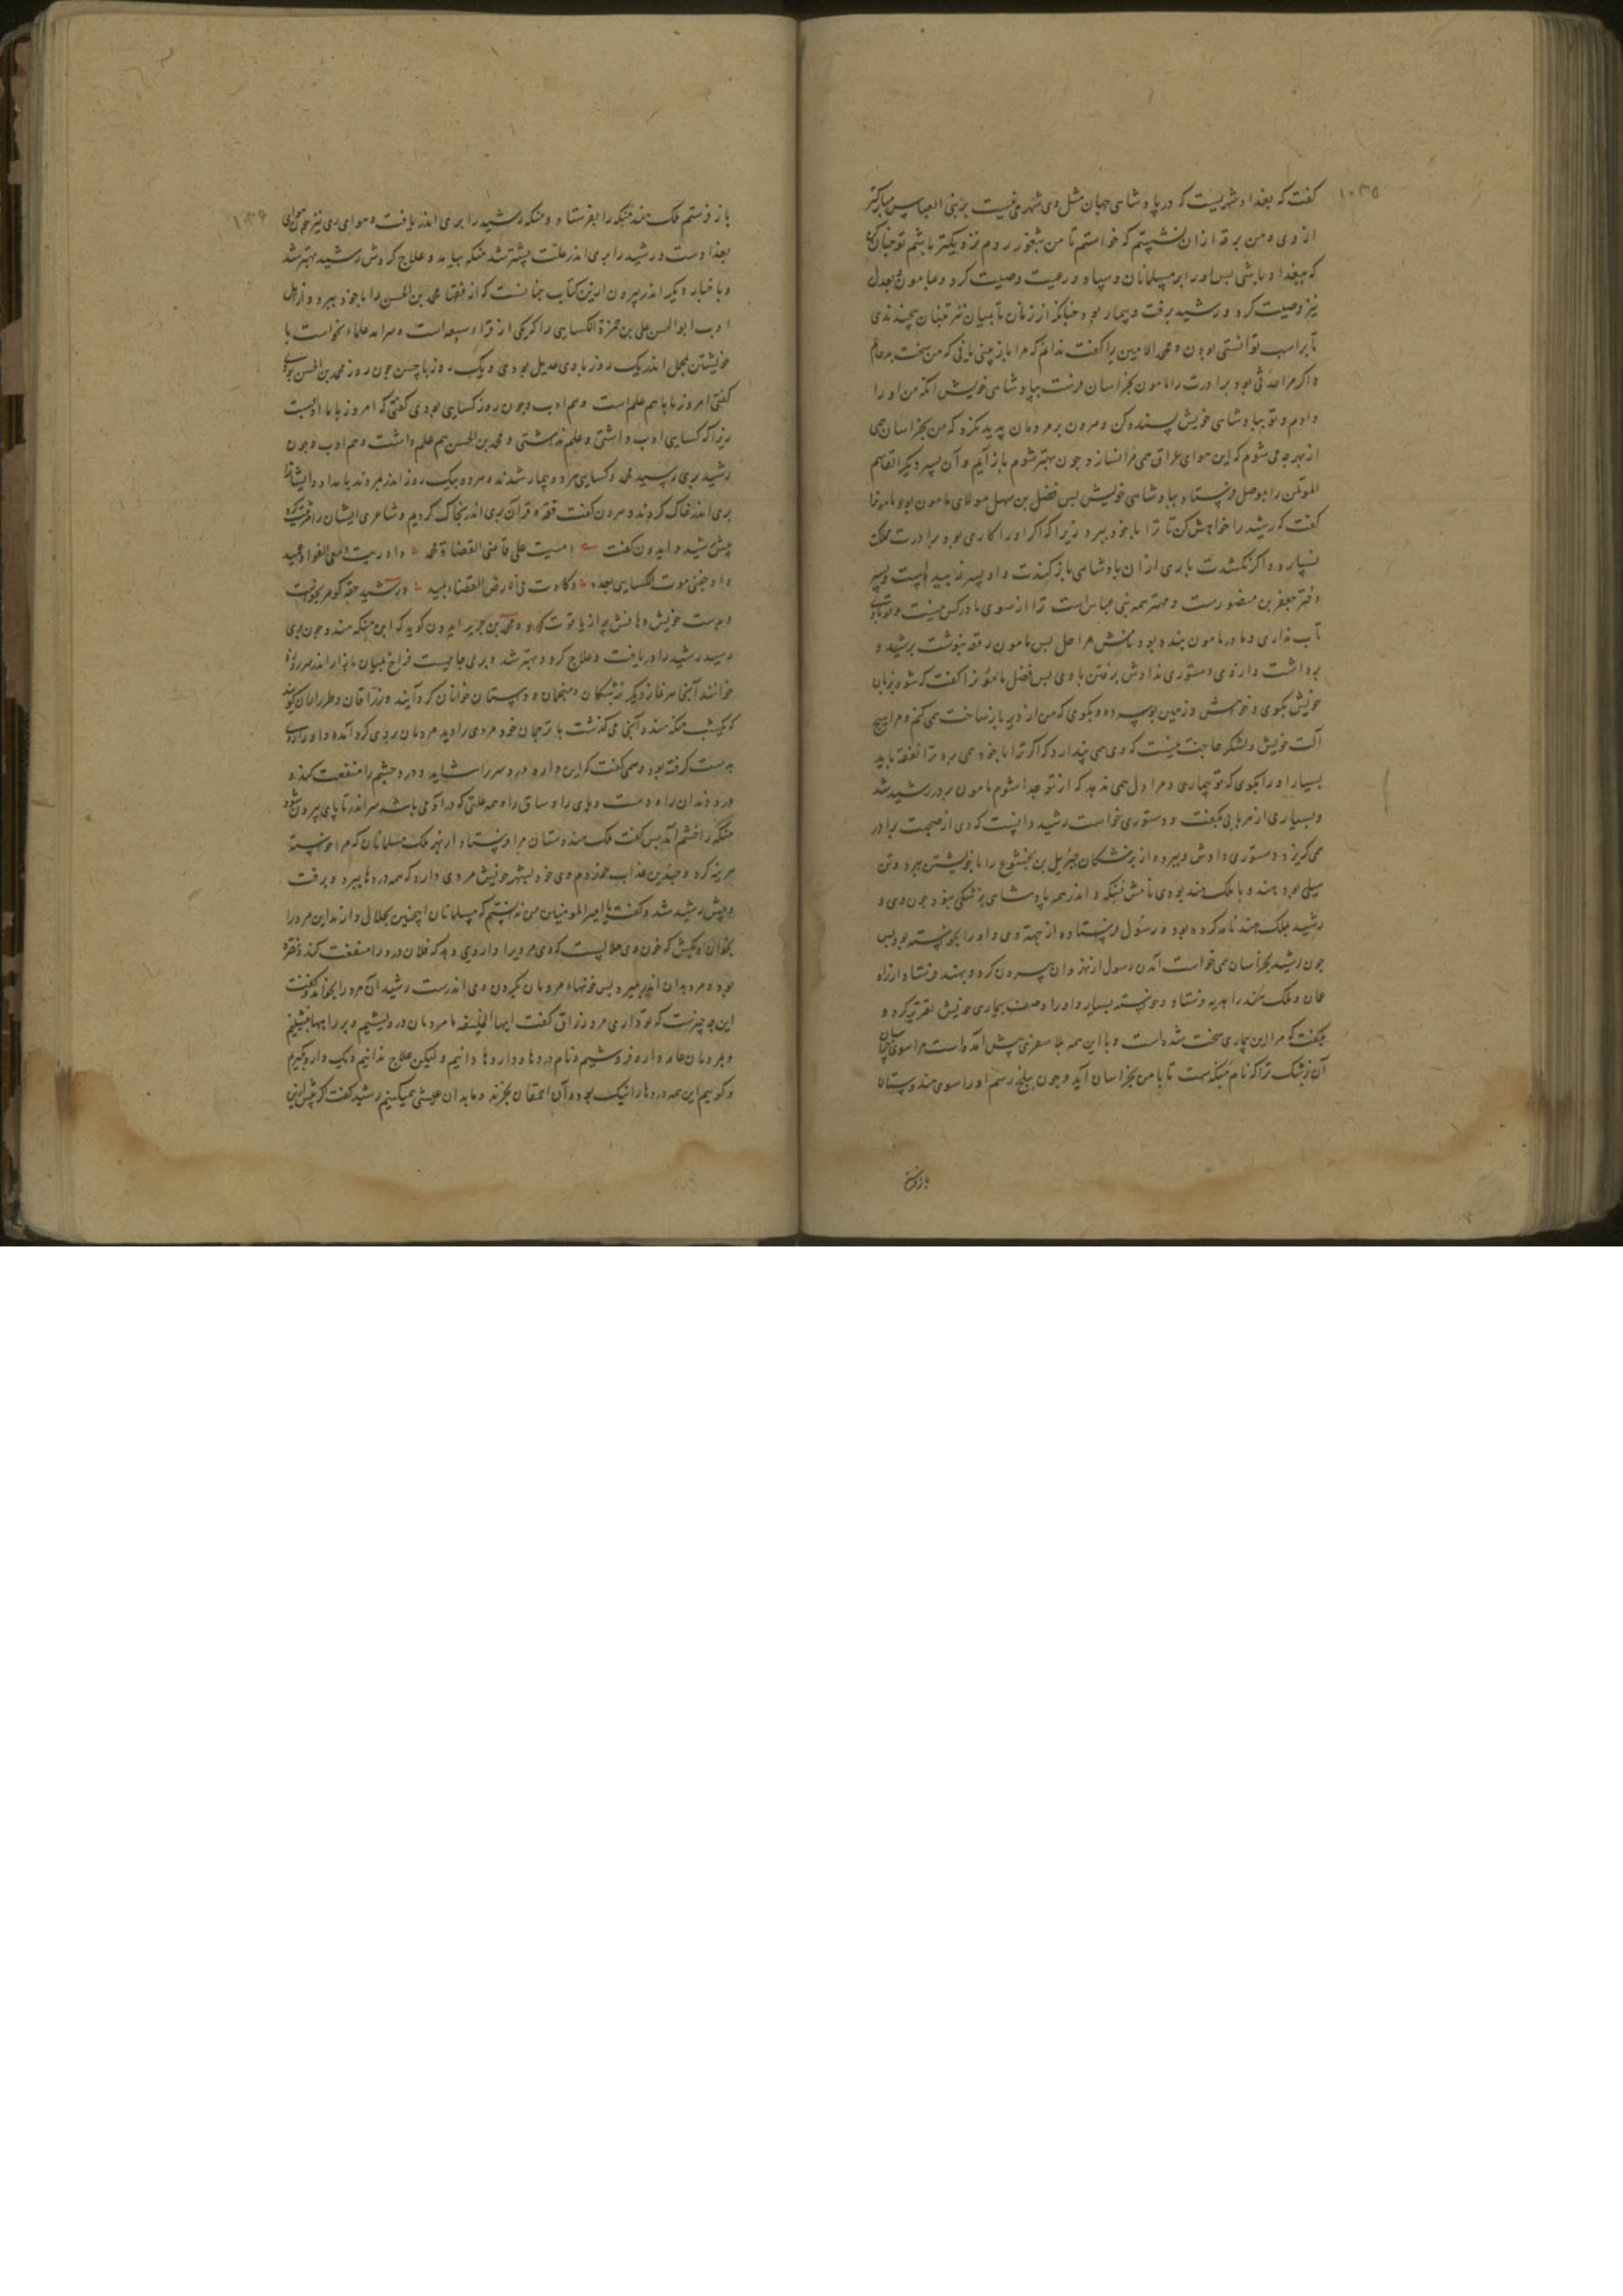 ۱۰۳۵
گفت که بغداد شهریست که در پادشاهی جهان مثل وی شهری نیست بر بنی العباس مبارکتر
از وی و من برقه از ان نشستم که خواستم تا من بثغور روم نزدیکتر باشم تو چنان کن
که ببغداد باشی پس اورا بر مسلمانان و سپاه و رعیت وصیت کرد و بمامون بعدل
نیز وصیت کرد و رشید برفت و بیمار بود چنانکه از زنان تا بمیان
تا بر اسب توانستی بودن و محمد الامین را گفت ندانم که مرا باز بینی یا نی که من سخت بدحالم
و اگر مرا حدثی بود برادرت را مامون بخراسان فرست بپادشاهی خویش آنکه من او را
دادم و تو بپادشاهی خویش بسنده کن و مردمان پدید نکرد که من بخراسان همی
از بهر چه می شوم که این هوای عراق همی مرا نسازد چون بهتر شوم باز آیم و آن پسر دیگر القاسم
الموتمن را بموصل فرستاد بپادشاهی خویش پس فضل بن سهل مولای مامون بود مامونرا
گفت که رشید را خواهش کن تا ترا با خود ببرد زیرا که اگر او را کاری بود برادرت مملکت
نسپارد و اگر نکشدت باری از ان پادشاهی باز کندت و او پسر زبیده است و پسر
دختر جعفر بن منصورست و مهتر همه بنی عباس است ترا از سوی مادر کس نیست و تو با وی
تاب نداری و مادر مامون بنده بود نامش مراجل پس مامون رقعه بنوشت برشید و
برداشت و از وی دستوری نداوش برفتن با وی پس فضل مامون را گفت که شو و بزبان
خویش بگوی و خدمتش و زمین بوسه ده و بگوی که من از دیر باز ساخت همی کنم و مرا هیچ
آلت خویش و لشکر حاجت نیست که وی همی پندارد که اگر ترا با خود همی برد ترا نفقه باید
بسیار اورا بگوی که تو بیماری و مرا دل همی ندهد که از تو جدا شوم مامون بر در رشید شد
و بسیاری از مهربانی بگفت و دستوری خواست رشید دانست که وی از صحبت برادر
همی گریزد دستوری دادش و ببرد و از پزشکان جبرئیل بن بختیشوع را با خویشتن ببرد و تن
سیلی بود بهند و با ملک هند بودی نامش منکه و اندر همه پادشاهی پزشکی نبود چون وی و
رشید بملک هند نامه کرده بود و رسول فرستاده از جهت وی و او را بخواسته بود پس
چون رشید بخراسان همی خواست آمدن رسول از نهروان بیرون کرد و بهند فرستاد از راه
عمان و ملک هند را هدیه فرستاد و خواسته بسیار و اورا وصف بیماری خویش تقریر کرد و
بگفت که مرا این بیماری سخت شده است و با این همه بلا سفری پیش آمده است مرا سوی خراسان
آن پزشک ترا که نام منکه است تا با من بخراسان آید و چون ببلخ رسم او را سوی هندوستان
باز فرستم
۱۰۳۶
باز فرستم ملک هند منکه را بفرستاد و منکه رشید را بری اندر یافت و هوای ری نیز چون هوای
بغدادست و رشید را بری اندر علت بیشتر شد منکه بیامد و علاج کردش رشید بهتر شد
و باخبار دیگر اندر بیرون ازین کتاب چنانست که از فقها محمد بن الحسن را با خود ببرد و از اهل
ادب ابو الحسن علی بن حمزة الکسایی را که یکی از قراء سبعه است و سرامد علماء بخواست با
خویشتن بمحمل اندر یک روز با وی عدیل بودی و یک روز با حسن چون روز محمد بن الحسن بودی
گفتی امروز با ما هم علم است و هم ادب و چون روز کسایی بودی گفتی که امروز با ما ادبست
زیرا که کسایی ادب داشتی و علم نداشتی و محمد بن الحسن هم علم داشت و هم ادب و چون
رشید بری رسید محمد و کسایی هر دو بیمار شدند و هر دو بیک روز اندر بمردند بامداد و ایشانرا
بری اندر خاک کردند و هرون گفت فقه و قرآن بری اندر بخاک کردیم و شاعری ایشان را مرثیت کرد
پیش رشید و ایدون گفت امسیت علی قاضی القضاة محمد و اذریت دمعی الفواد عمید
و اوجعنی موت الکسایی بعده و کادت بی الارض الفضاء تمید و رشید حقه گوهر بخواست
و بدست خویش دهانش پر از یاقوت کرد و محمد بن جریر ایدون گوید که این منکه هندو چون بری
رسید رشید را دریافت و علاج کرد و بهتر شد و بری جاییست فراخ بمیان بازار اندر سر روده
خوانند آنجا هر نماز دیگر پزشکان و منجمان و دبستان خوانان گرد آیند و رزاقان و طراران گویند
که یکشب منکه هندو آنجا می گذشت با ترجمان خود مردی را دید مردمان بروی گرد آمده و داروی
بدست گرفته بود و همی گفت که این دارو درد سر را شاید و درد چشم را منفعت کند و
درد دندان را و دست و پای را و ساق را و همه علتی که در آدمی باشد سر اندر تا پای بیرون شود
منکه را خشم آمد پس گفت ملک هندوستان مرا فرستاد از بهر ملک مسلمانان که مرا خواسته
هزینه کرد و چندین عذاب خوردم وی خود بشهر خویش مردی دارد که همه دردها ببرد و برفت
و پیش رشید شد و گفت یا امیر المومنین من ندانستم که مسلمانان اینچنین بحلال دارند این مرد را
بخوان و بکش که خون وی حلالیست که وی مردیرا داروی دهد که فلان درد را منفعت کند نه
بود و مرد بدان اندر بمیرد پس خونهاء مردمان بگردن وی اندرست رشید آن مرد را بخواند و گفت
این چه چیزست که تو داری مرد رزاق گفت ایها الخلیفه ما مردمان درویشیم و بر راهها نشینیم
و بمردمان عامه دارو فروشیم و نام دردها و داروها دانیم و لیکن علاج ندانیم و یک دارو بگیریم
و گوییم این همه دردها را نیک بود و آن احمقان بخرند و ما بدان عیشی همیکنیم رشید گفت اگر پیش ازین